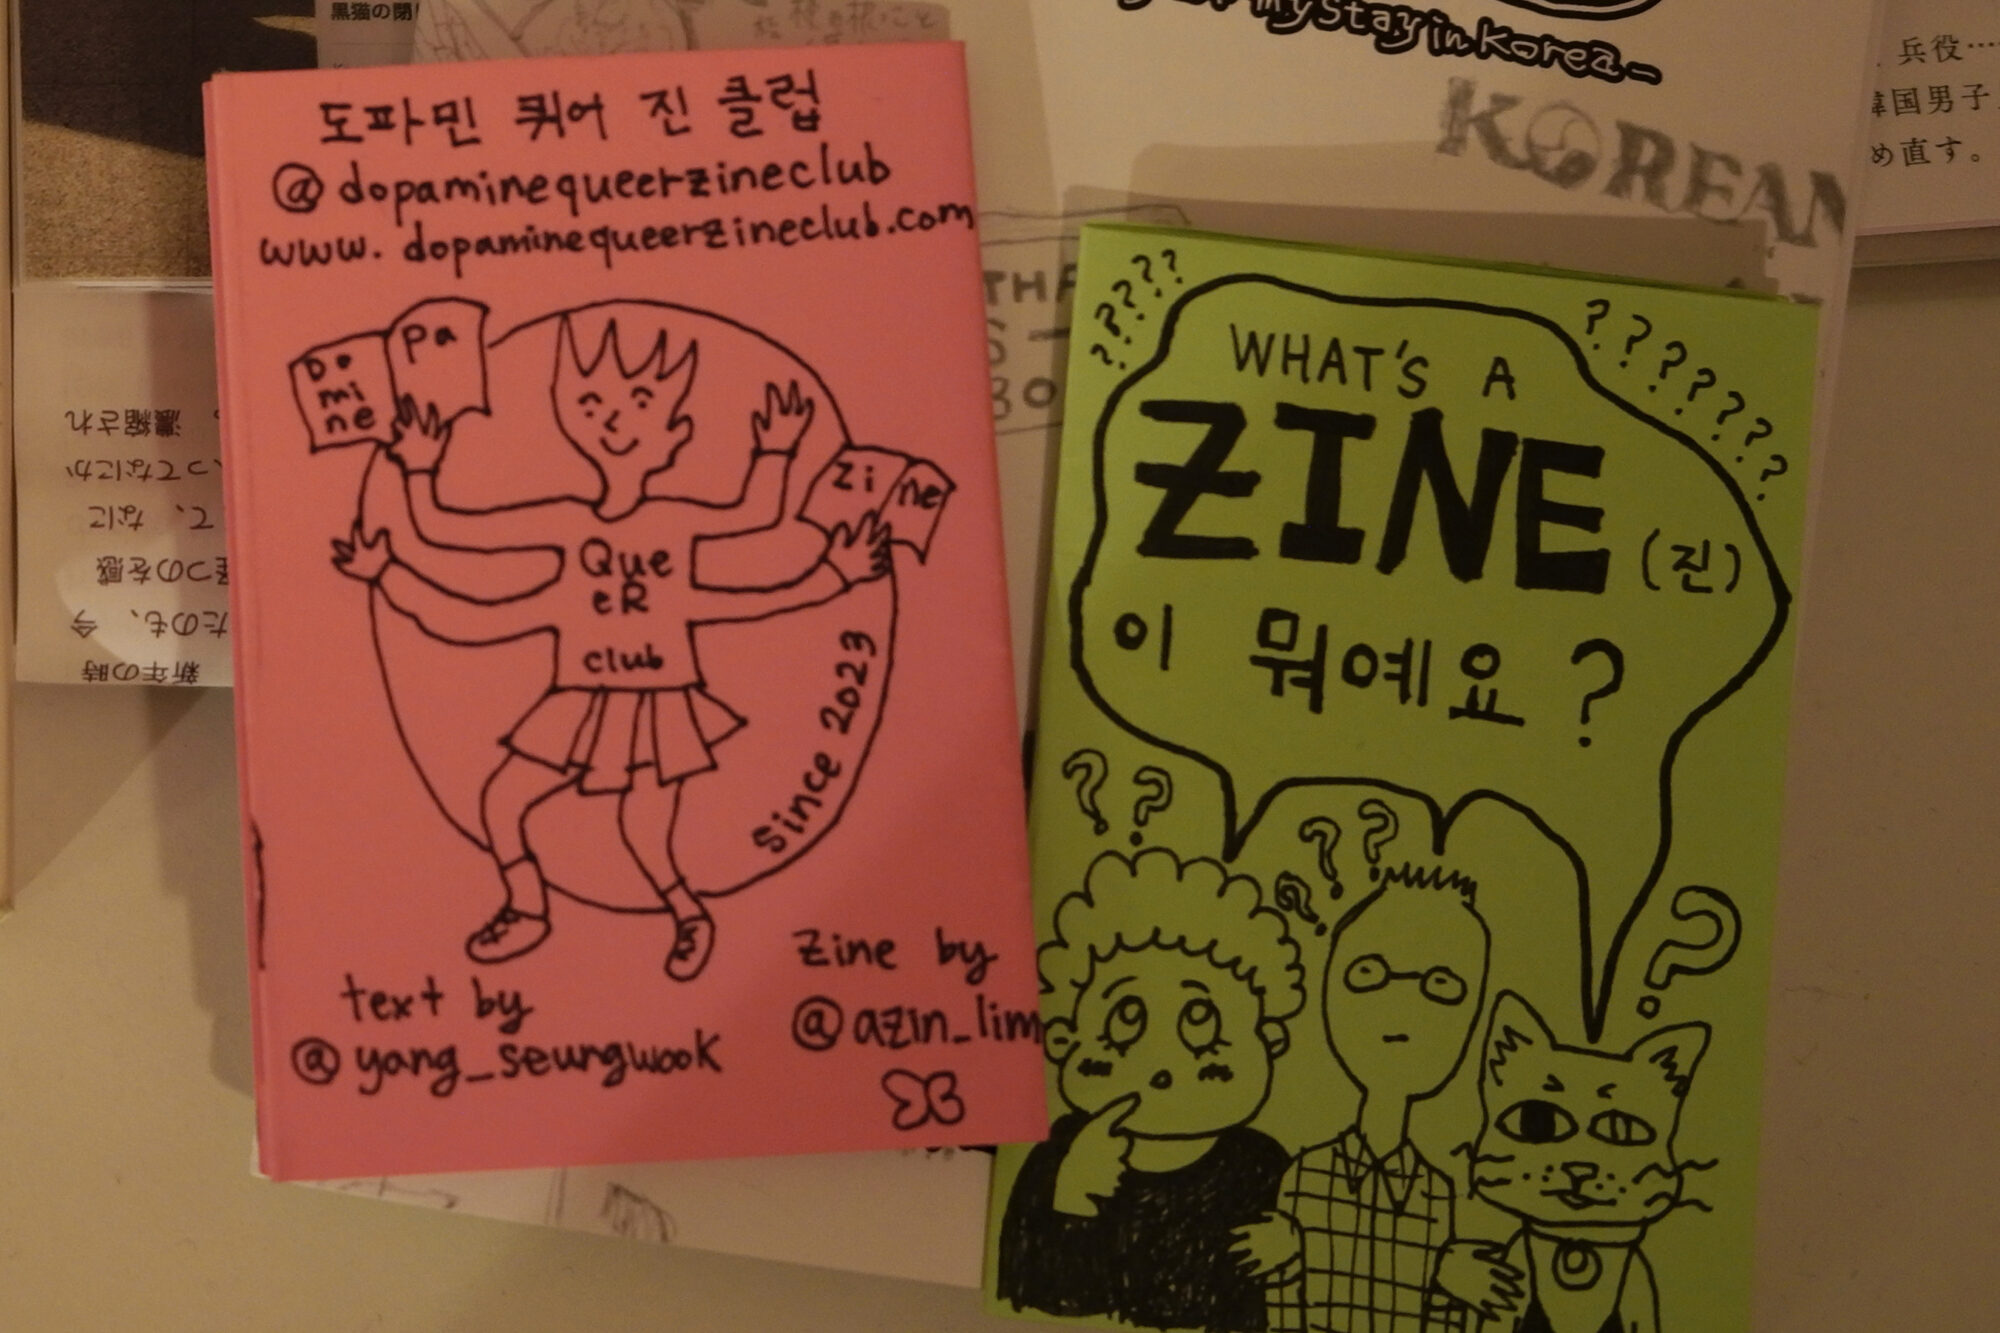 黒猫の閉
도파민 퀴어 진 클럽
@dopaminequeerzineclub
www.dopaminequeerzineclub.com
Do
mi
ne
pa
Zi
ne
Que
eR
club
since 2023
text by
@yang_seungwook
zine by
@azin_lim
my stay in Korea-
KOREAN
兵役…
韓国男子
め直す。
????
???????
WHAT'S A
ZINE (진)
이 뭐예요?
??
???
?
新年の時
たのも、今
つのを感
て、なに
ってなにか
濃縮され